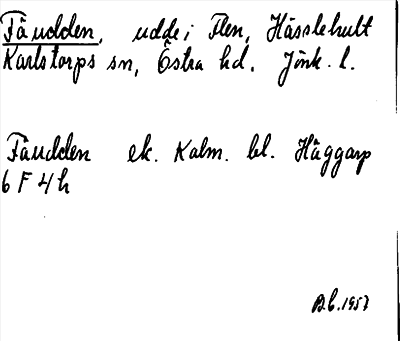 Fåudden, udde i Flen, Hässlehult
Karlstorps sn, Östra hd. Jönk. l.
Fåudden ek. Kalm. bl. Häggarp
6 F 4 h
B.L. 1957